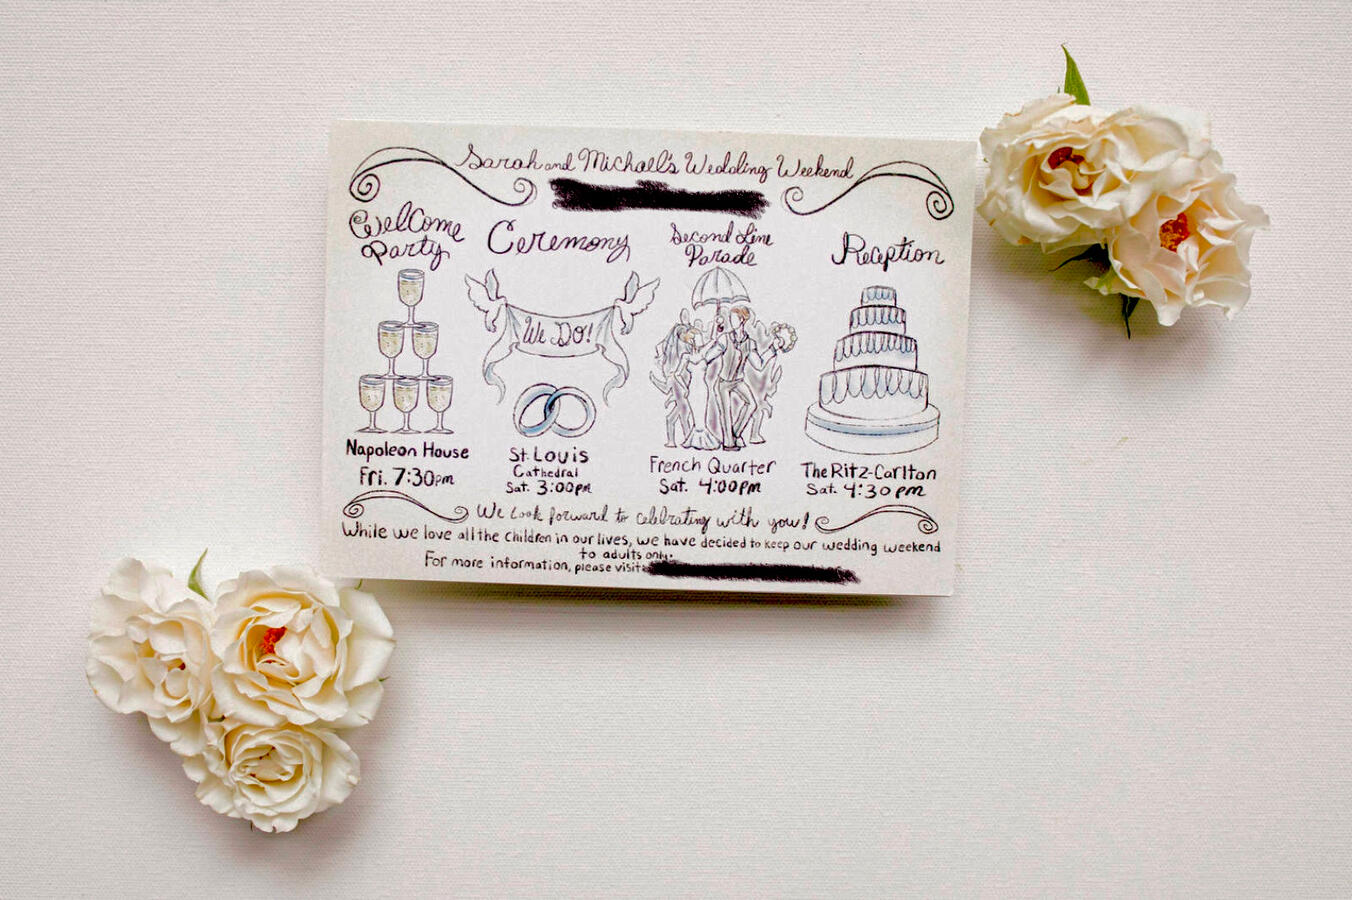 Sarah and Michael's Wedding Weekend
Welcome
Party
Napoleon House
Fri. 7:30pm
Ceremony
We Do!
St. Louis
Cathedral
Sat. 3:00pm
Second Line
Parade
French Quarter
Sat. 4:00pm
Reception
The Ritz-Carlton
Sat. 4:30pm
We look forward to celebrating with you!
While we love all the children in our lives, we have decided to keep our wedding weekend
to adults only.
For more information, please visit: